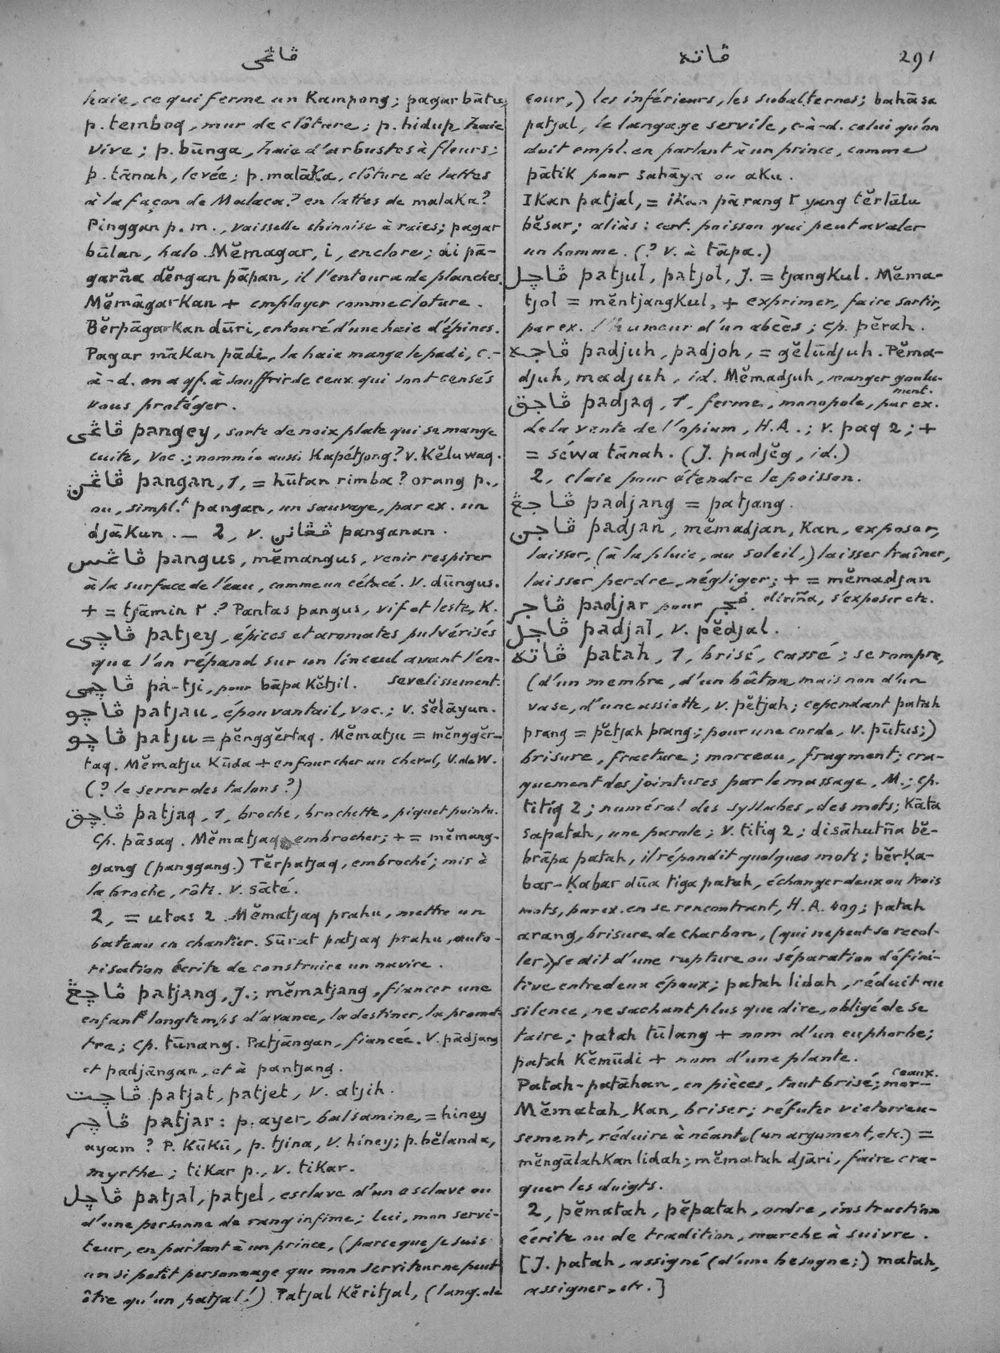 ڤاڠى
ڤاته
291
haie, ce qui ferme un Kampong; pagar bātu,
p. temboq, mur de clôture; p. hidup, haie
vive; p. būnga, haie d'arbustes à fleurs;
p. tānah, levée; p. malāka, clôture de lattes
à la façon de Malaca? en lattes de malaka?
Pinggan p. m., vaisselle chinoise à raies; pagar
būlan, halo. Mĕmagar, i, enclore; di pā-
garña dĕngan pāpan, il l'entoura de planches.
MĕmāgarKan + employer comme cloture.
BĕrpāgarKan dūri, entouré d'une haie d'épines.
Pagar māKan pādi, la haie mange le padi, c.-
à-d. on a qf. à souffrir de ceux qui sont censés
vous protéger.
ڤاڠى pangey, sorte de noix plate qui se mange
cuite, Voc.; nommée aussi Kapétjong? v. Kĕluwaq.
ڤاڠن pangan, 1, = hūtan rimba? orang p.,
ou, simpl.t pangan, un sauvage, par ex. un
djāKun. — 2, v. ڤڠانن panganan.
ڤاڠس pangus, mĕmangus, venir respirer
à la surface de l'eau, comme un cétacé. V. dūngus.
+ = tjāmin r? Pantas pangus, vif et leste, K.
ڤاچى patjey, épices et aromates pulvérisés
que l'on répand sur un linceul avant l'en-
sevelissement.
ڤاچى pà-tji, pour bāpa Kĕtjil.
ڤاچو patjau, épouvantail, voc.; v. sĕlāyun.
ڤاچو patju = pĕnggĕrtaq. Mĕmatju = mĕnggĕr-
taq. Mĕmatju Kūda + enfourcher un cheval, V. de W.
(? le serrer des talons?)
ڤاچق patjaq, 1, broche, brochette, piquet pointu.
Cp. pāsaq. Mĕmatjaq, embrocher; + = mĕmang-
gang (panggang.) Tĕrpatjaq, embroché; mis à
la broche, rôti. v. sāté.
2, = utas 2. Mĕmatjaq prahu, mettre un
bateau en chantier. Sūrat patjaq prahu, auto-
risation écrite de construire un navire.
ڤاچڠ patjang, J.; mĕmatjang, fiancer une
enfant longtemps d'avance, la destiner, la promet-
tre; cp. tūnang. Patjāngan, fiancée. V. pādjang
et padjāngan, et à pantjang.
ڤاچت patjat, patjet, v. atjih.
ڤاچر patjar: p. ayer, balsamine, = hiney
ayam? P. KūKū, p. tjina, v. hiney; p. bĕlanda,
myrthe; tiKar p., v. tiKar.
ڤاچل patjal, patjel, esclave d'un esclave ou
d'une personne de rang infime; lui, mon servi-
teur, en parlant à un prince, (parce que je suis
un si petit personnage que mon serviteur ne peut
être qu'un patjal!) Patjal Kĕritjal, (lang. de
cour,) les inférieurs, les subalternes; bahāsa
patjal, le langage servile, c-à-d. celui qu'on
doit empl. en parlant à un prince, comme
pātik pour sahāya ou aku.
IKan patjal, = iKan pārang r yang tĕrlālu
bĕsar; aliàs: cert. poisson qui peut avaler
un homme. (? v. à tāpa.)
ڤاچل patjul, patjol, J. = tjangKul. Mĕma-
tjol = mĕntjangKul, + exprimer, faire sortir,
par ex. l'humeur d'un abcès; cp. pĕrah.
ڤاجه padjuh, padjoh, = gĕlūdjuh. Pĕma-
djuh, madjuh, id. Mĕmadjuh, manger goulu-
ment.
ڤاجق padjaq, 1, ferme, monopole, par ex.
de la vente de l'opium, H.A.; v. paq 2; +
= séwa tānah. (J. padjĕg, id.)
2, claie pour étendre le poisson.
ڤاجڠ padjang = patjang.
ڤاجن padjan, mĕmadjan, Kan, exposer,
laisser, (à la pluie, au soleil,) laisser traîner,
laisser perdre, négliger; + = mĕmadjan
diriña, s'exposer etc.
ڤاجر padjar pour فجر.
ڤاجل padjal, v. pĕdjal.
ڤاته patah, 1, brisé, cassé; se rompre,
(d'un membre, d'un bâton, mais non d'un
vase, d'une assiette, v. pĕtjah; cependant patah
prang = pĕtjah prang; pour une corde, v. pūtus;)
brisure, fracture; morceau, fragment; cra-
quement des jointures par le massage, M.; cp.
titiq 2; numéral des syllabes, des mots; Kāta
sapatah, une parole; v. titiq 2; disāhutña bĕ-
brāpa patah, il répondit quelques mots; bĕrKa-
bar-Kabar dūa tiga patah, échanger deux ou trois
mots, par ex. en se rencontrant, H.A. 409; patah
arang, brisure de charbon, (qui ne peut se recol-
ler) se dit d'une rupture ou séparation défini-
tive entre deux époux; patah lidah, réduit au
silence, ne sachant plus que dire, obligé de se
taire; patah tūlang + nom d'un euphorbe;
patah Kĕmūdi + nom d'une plante.
Patah-patāhan, en pièces, tout brisé; mor-
ceaux.
Mĕmatah, Kan, briser; réfuter victorieu-
sement, réduire à néant, (un argument, etc.) =
mĕngālahKan lidah; mĕmatah djāri, faire cra-
quer les doigts.
2, pĕmatah, pĕpatah, ordre, instruction
écrite ou de tradition, marche à suivre.
[J. patah, assigné (d'une besogne;) matah,
assigner, etc.]